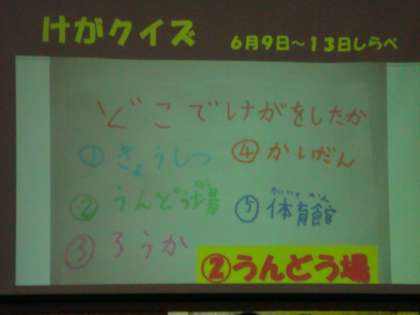 けがクイズ
6月9日～13日しらべ
どこでけがをしたか
①きょうしつ
④かいだん
②うんどう場
⑤体育館
③ろうか
②うんどう場